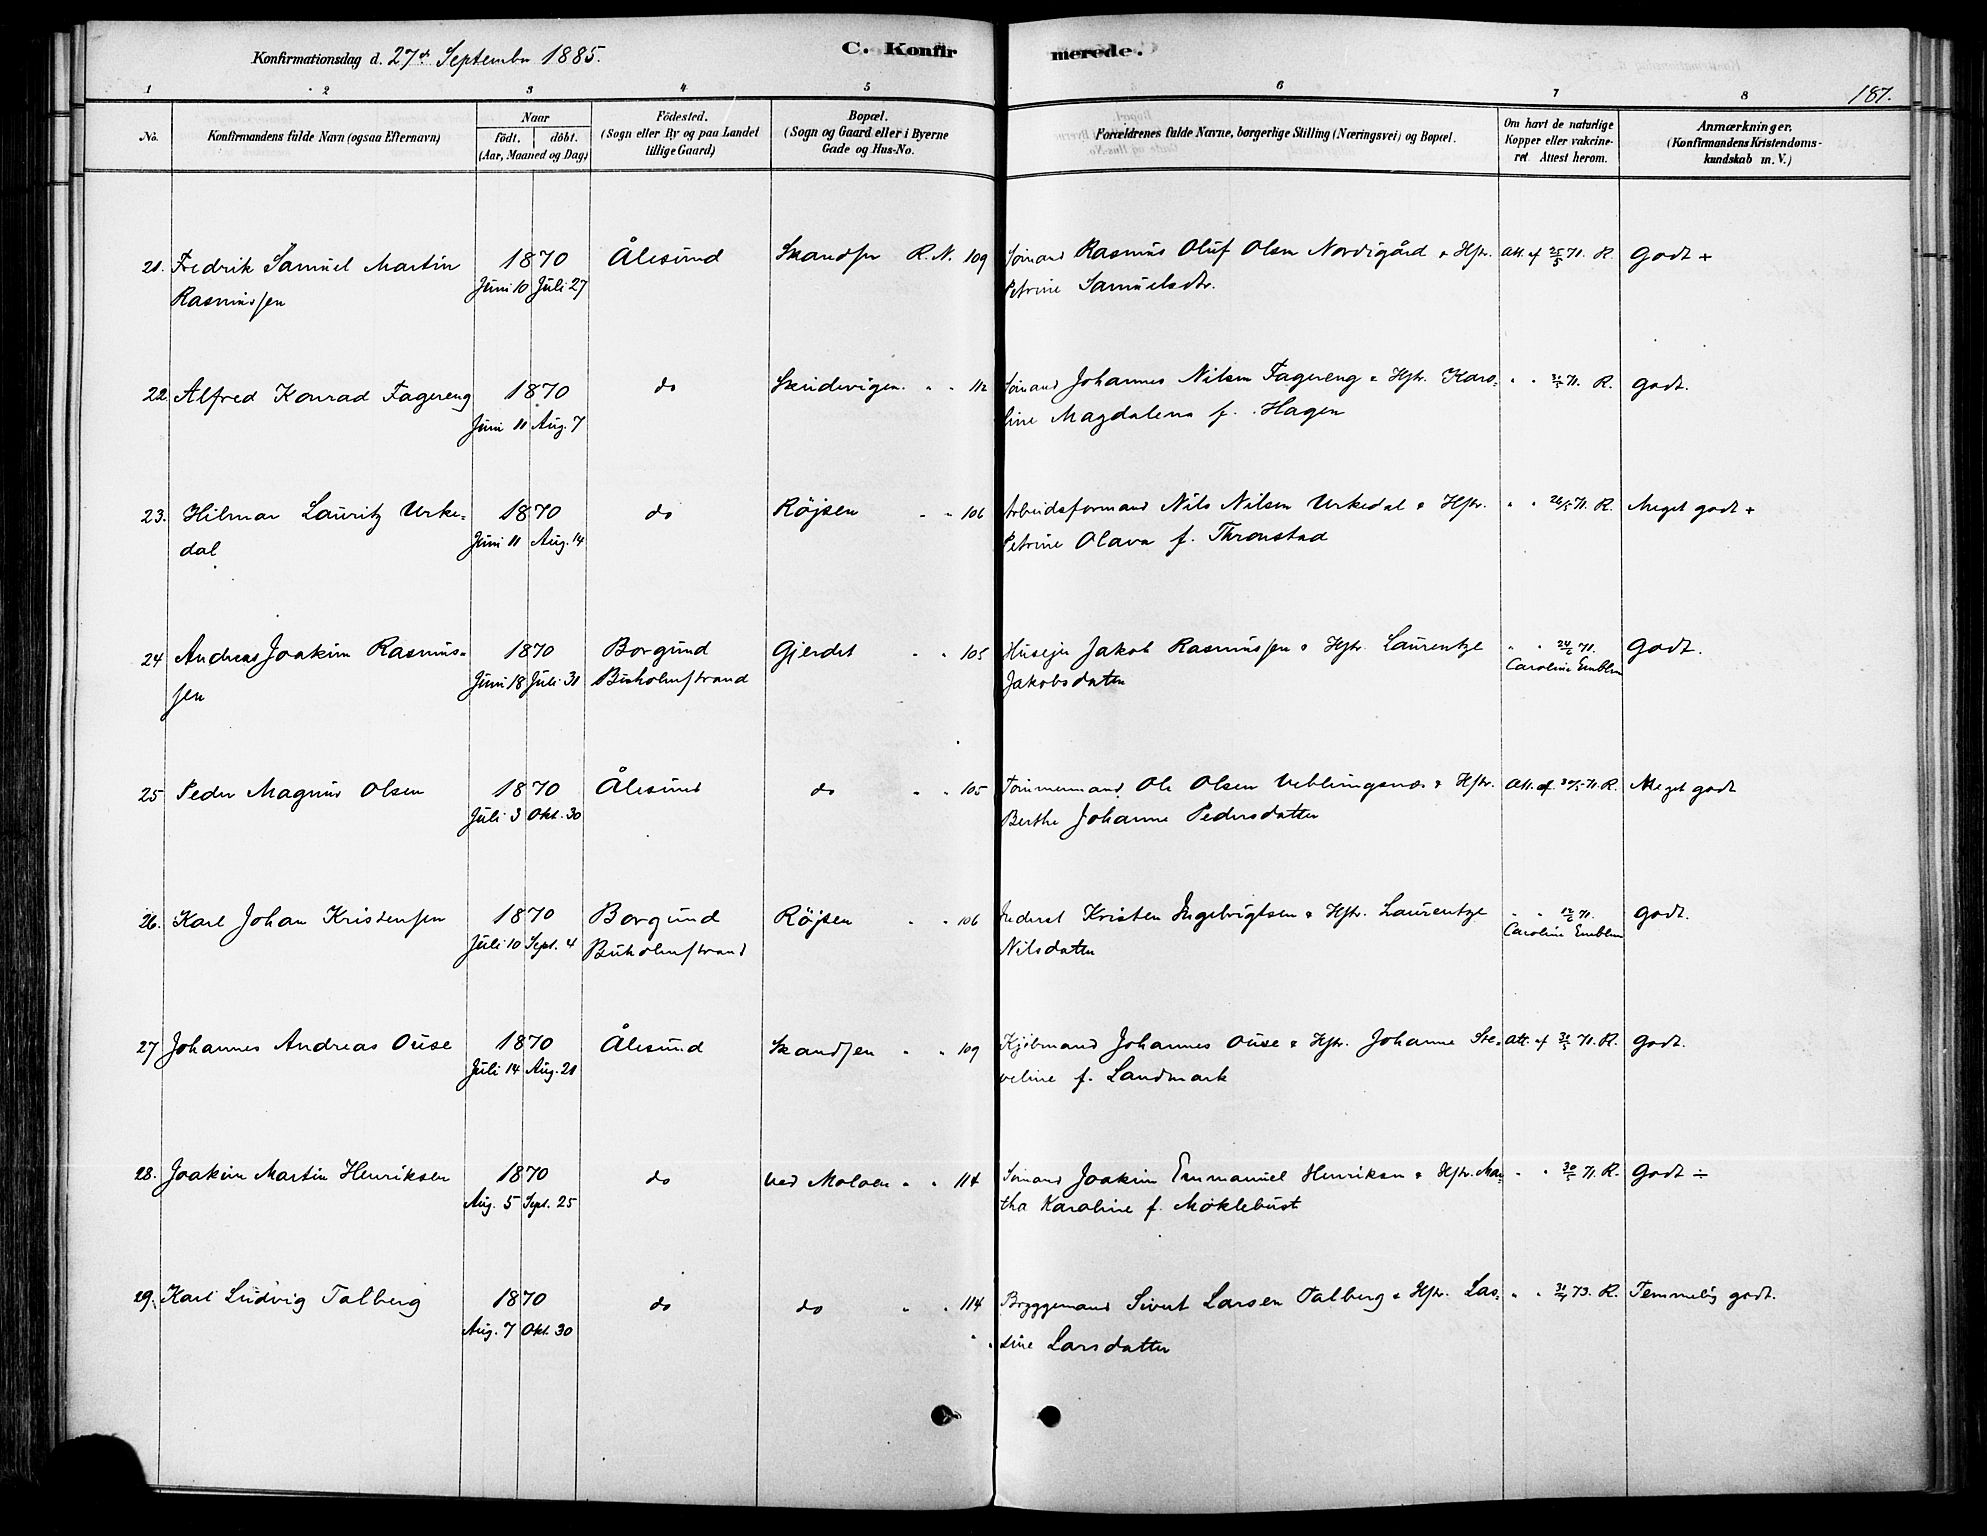 Konfirmationsdag d. 27de September 1885.
C. Konfirmerede.
187.
1 2 3 4 5 6 7 8
No. Konfirmandens fulde Navn (ogsaa Efternavn) Naar födt. döbt. (Aar, Maaned og Dag) Födested. (Sogn eller By og paa Landet tillige Gaard) Bopæl. (Sogn og Gaard eller i Byerne Gade og Hus-No. Forældrenes fulde Navne, borgerlige Stilling (Næringsvei) og Bopæl. Om havt de naturlige Kopper eller vakcineret. Attest herom. Anmærkninger. (Konfirmandens Kristendomskundskab m. V.)
21. Fredrik Samuel Martin 1870 Ålesund Skandsen R. N. 109 Sømand Rasmus Oluf Olsen Nordigård & Hstr. Att. af 25/5 71. R. Godt +
Rasmussen Juni 10 Juli 27 Petrine Samuelsdtr.
22. Alfred Konrad Fagereng 1870 do Skudevigen. " " 112 Sømand Johannes Nilsen Fagereng & Hstr. Karo- " " 71. R. godt.
Juni 11 Aug. 7 line Magdalena f. Hagen
23. Hilmar Lauritz Urke- 1870 do Röjsen " " 106 Arbeidsformand Nils Nilsen Urkedal & Hstr. " " 26/5 71. R. Meget godt +
dal Juni 11 Aug. 14 Petrine Olava f. Thronstad
24 Andreas Joakim Rasmus- 1870 Borgund Gjerdet " " 105 Husejer Jakob Rasmussen & Hstr. Laurentze " " 24/6 71. Godt.
sen Juni 18 Juli 31 Buholmstrand Jakobsdatter Caroline Emblem
25 Peder Magnus Olsen 1870 Ålesund do " " 105 Tømmermand Ole Olsen Veblungsnæs & Hstr. Att. af 30/5 71. R. Meget godt
Juli 3 Okt. 30 Berthe Johanne Pedersdatter
26. Karl Johan Kristensen 1870 Borgund Röjsen " " 106 Inderst Kristen Ingebrigtsen & Hstr. Laurentze " " 12/6 71. Godt.
Juli 10 Sept. 4 Buholmstrand Nilsdatter Caroline Emblem
27 Johannes Andreas Ouse 1870 Ålesund Skandsen " " 109 Kjøbmand Johannes Ouse & Hstr. Johanne Ste- Att. af 71. R. godt.
Juli 14 Aug. 21 veline f. Landmark
28. Joakim Martin Henriksen 1870 do ved Moloen " " 114 Sømand Joakim Emmanuel Henriksen & Hstr. Mar- " " 30/5 71. R. Godt ÷
Aug. 5 Sept. 25 tha Karoline f. Möklebust
29. Karl Ludvig Talberg 1870 do do " " 114 Bryggemand Sivert Larsen Talberg & Hstr. Las- " " 73. R. Temmelig godt.
Aug. 7 Okt. 30 sine Larsdatter